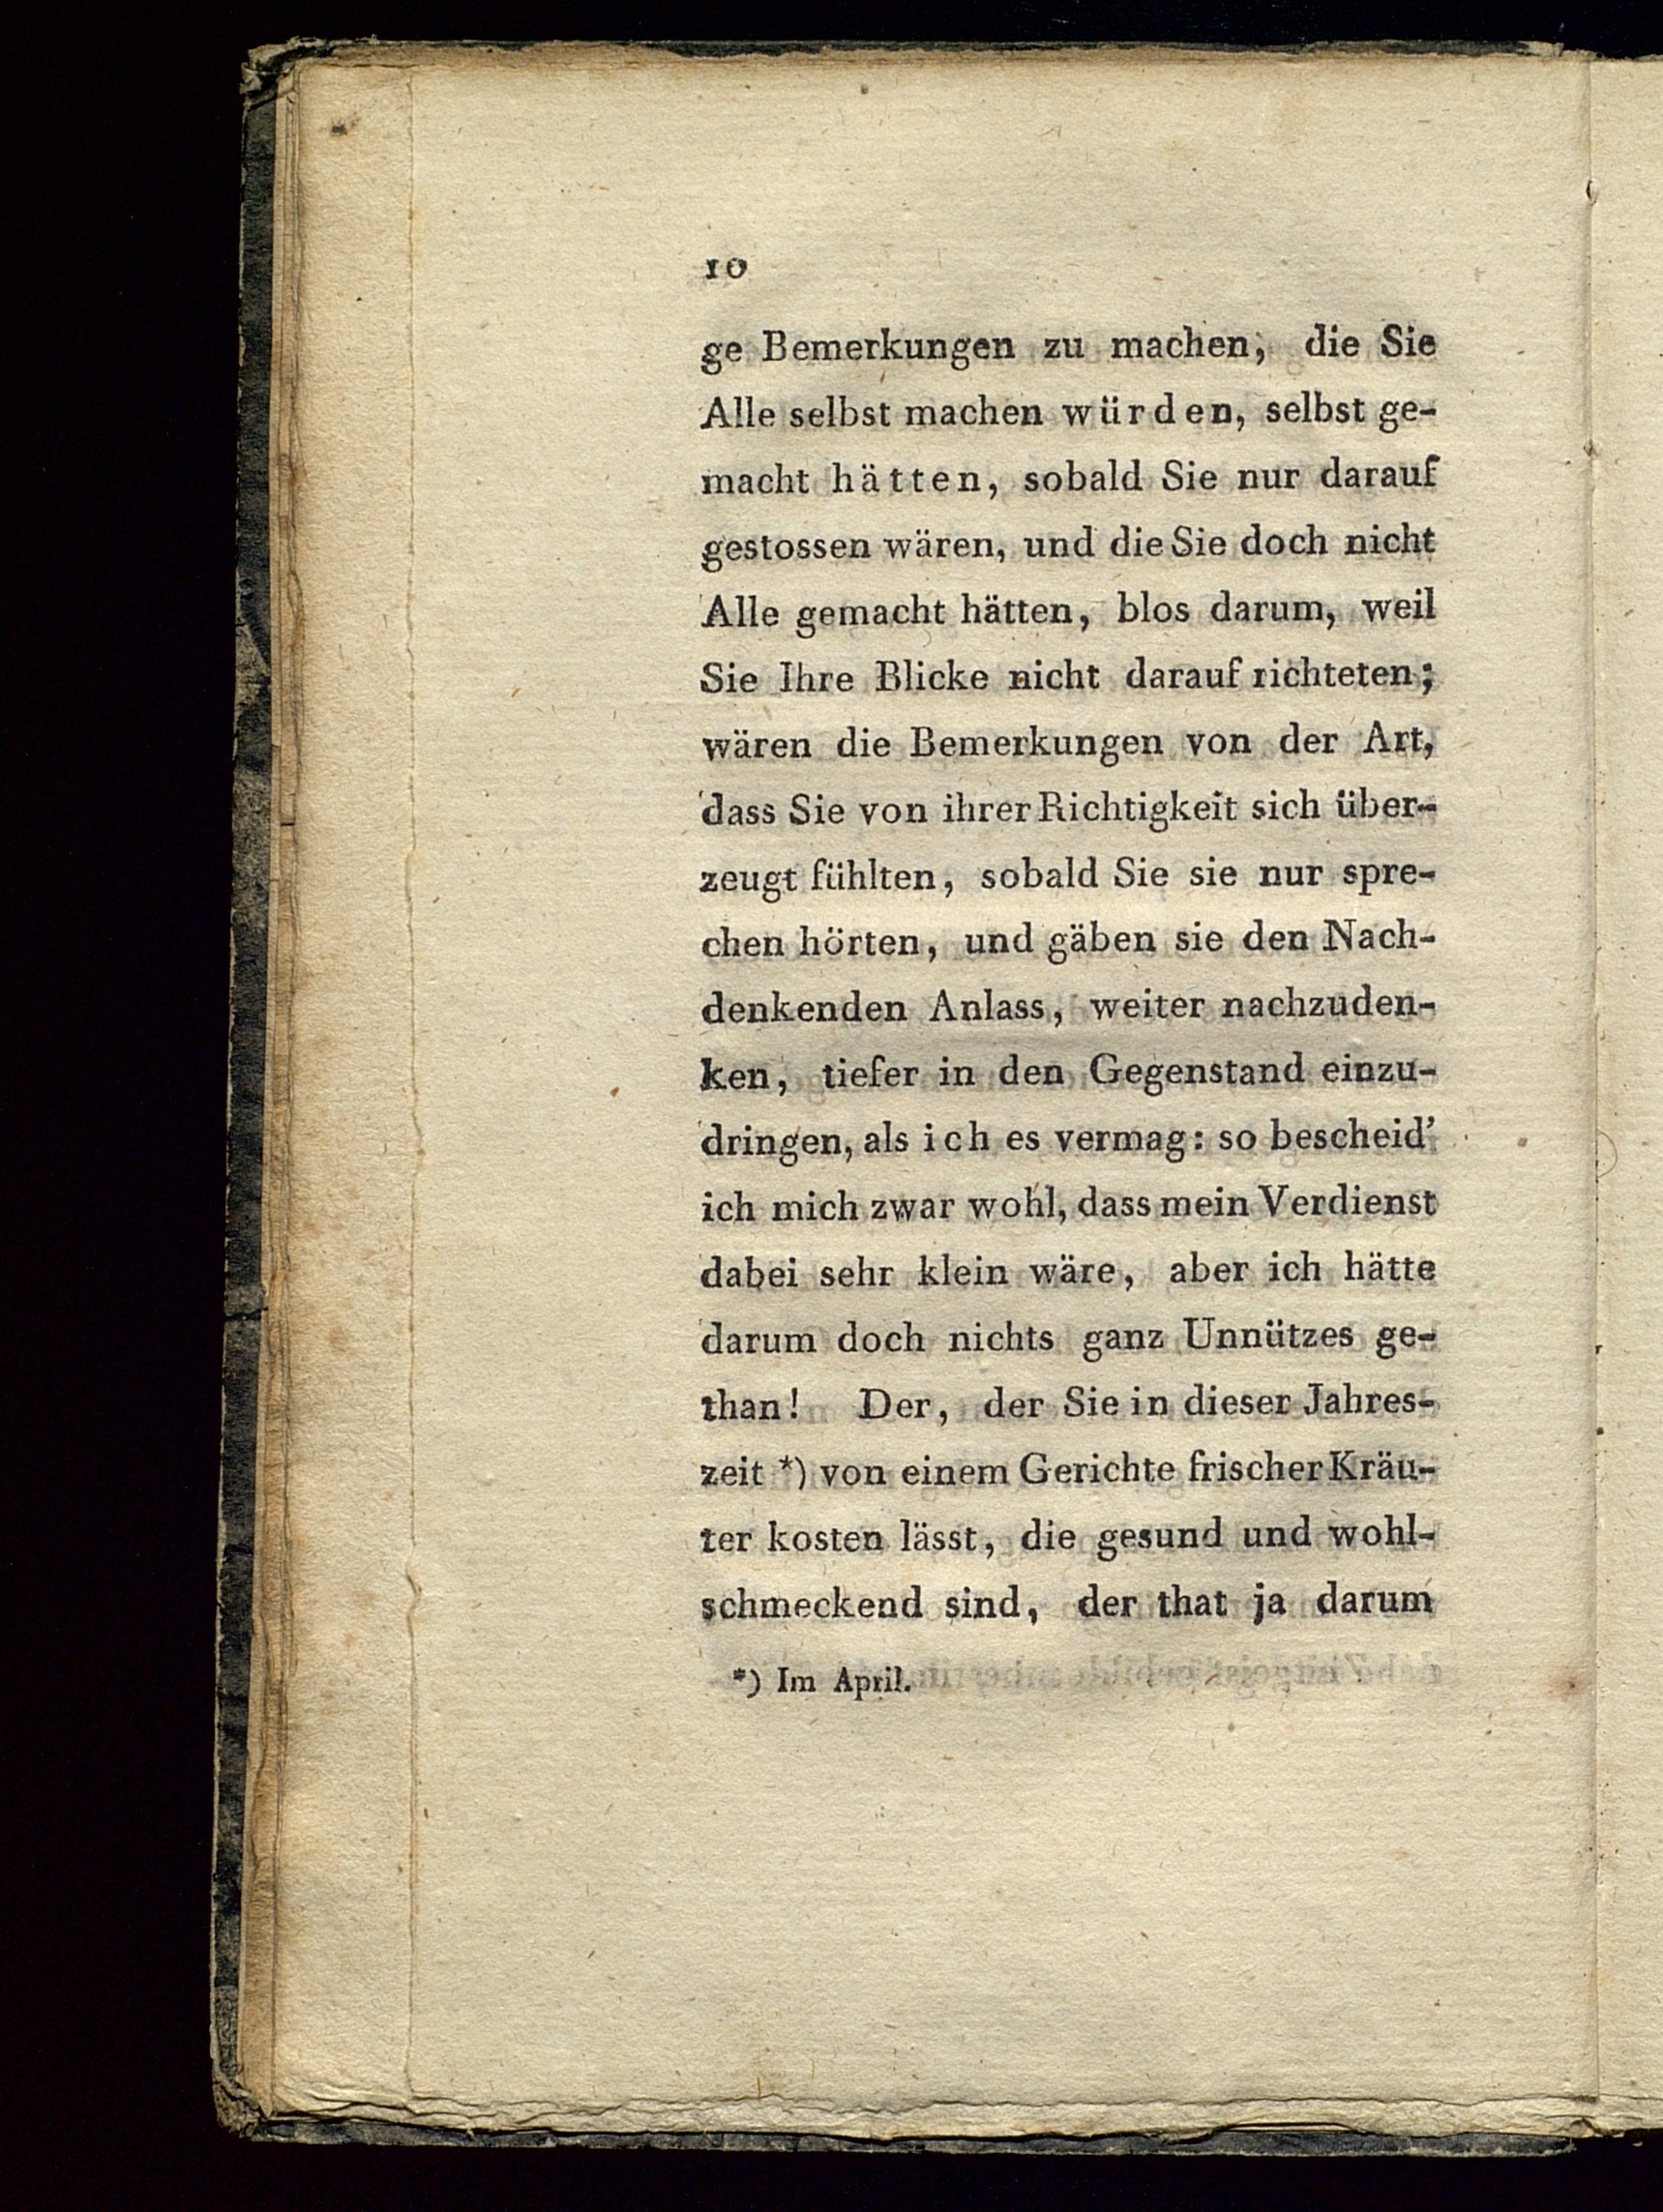 10
ge Bemerkungen zu machen, die Sie
Alle selbst machen würden, selbst ge-
macht hätten, sobald Sie nur darauf
gestossen wären, und die Sie doch nicht
Alle gemacht hätten, blos darum, weil
Sie Ihre Blicke nicht darauf richteten;
wären die Bemerkungen von der Art,
dass Sie von ihrer Richtigkeit sich über-
zeugt fühlten, sobald Sie sie nur spre-
chen hörten, und gäben sie den Nach-
denkenden Anlass, weiter nachzuden-
ken, tiefer in den Gegenstand einzu-
dringen, als ich es vermag: so bescheid'
ich mich zwar wohl, dass mein Verdienst
dabei sehr klein wäre, aber ich hätte
darum doch nichts ganz Unnützes ge-
than! Der, der Sie in dieser Jahres-
zeit *) von einem Gerichte frischer Kräu-
ter kosten lässt, die gesund und wohl-
schmeckend sind, der that ja darum
*) Im April.